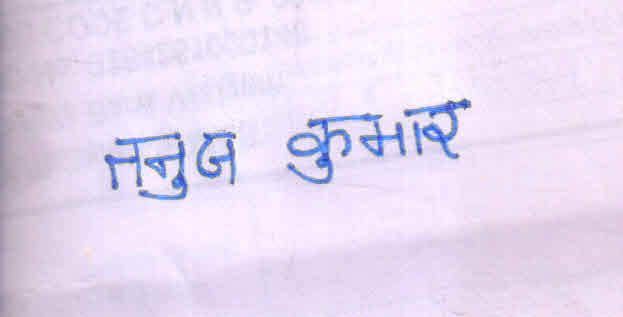 तनुज कुमार